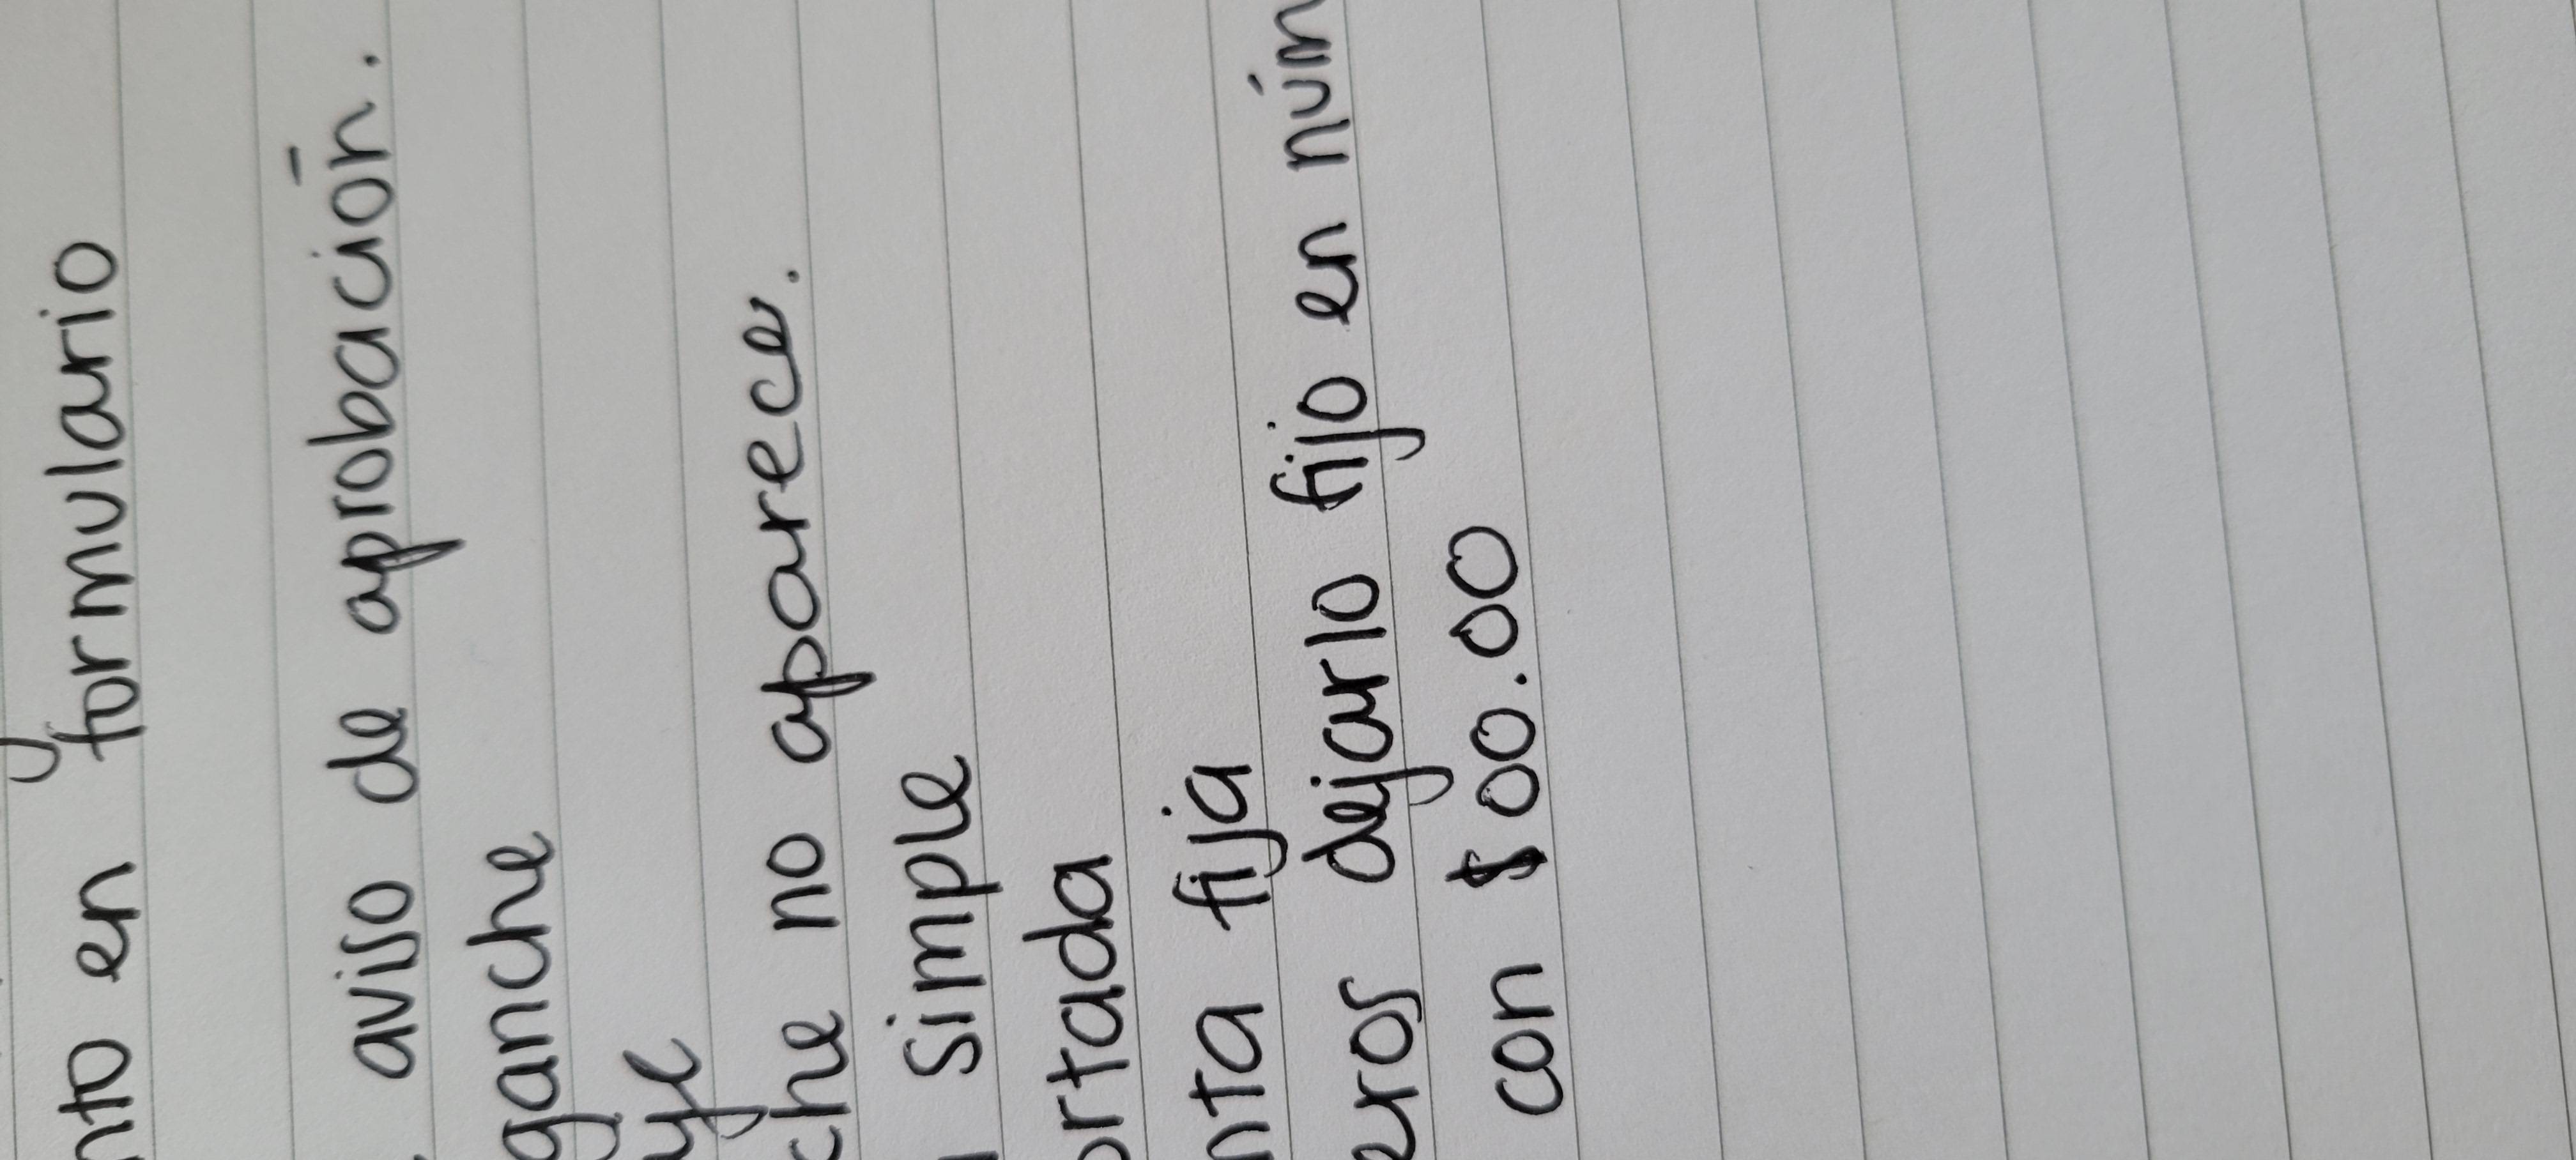 nto en formulario
aviso de aprobación.
ganche
ye
che no aparece.
simple
ortada
nta fija
eros dejarlo fijo en núm
con $00.00